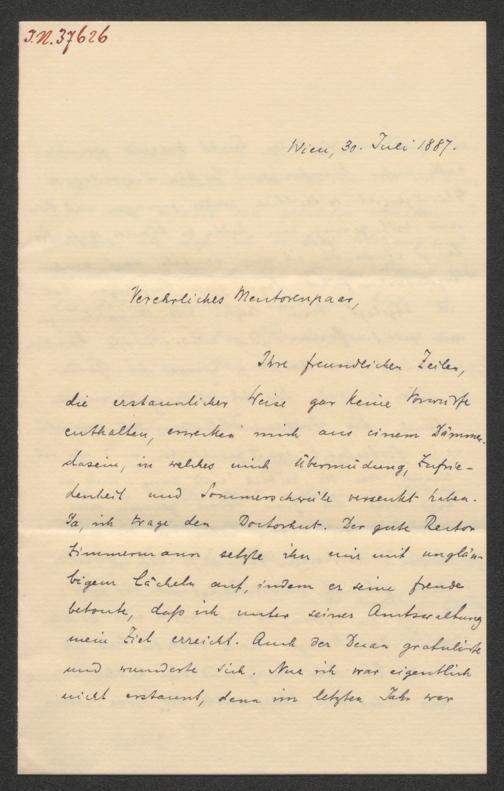 J.N. 37626
Wien, 30. Juli 1887.
Verehrliches Mentorenpaar,
Ihre freundlichen Zeilen,
die erstaunlicher Weise gar keine Vorwürfe
enthalten, erwecken mich aus einem Dämmer-
dasein, in welches mich Übermüdung, Zufrie-
denheit und Sommerschwüle versenkt haben.
Ja, ich trage den Doctorhut. Der gute Rector
Zimmermann setzte ihn mir mit ungläu-
bigem Lächeln auf, indem er seine Freude
betonte, daß ich unter seiner Amtswaltung
mein Ziel erreicht. Auch der Decan gratulirte
und wunderte sich. Nur ich war eigentlich
nicht erstaunt, denn im letzten Jahr war